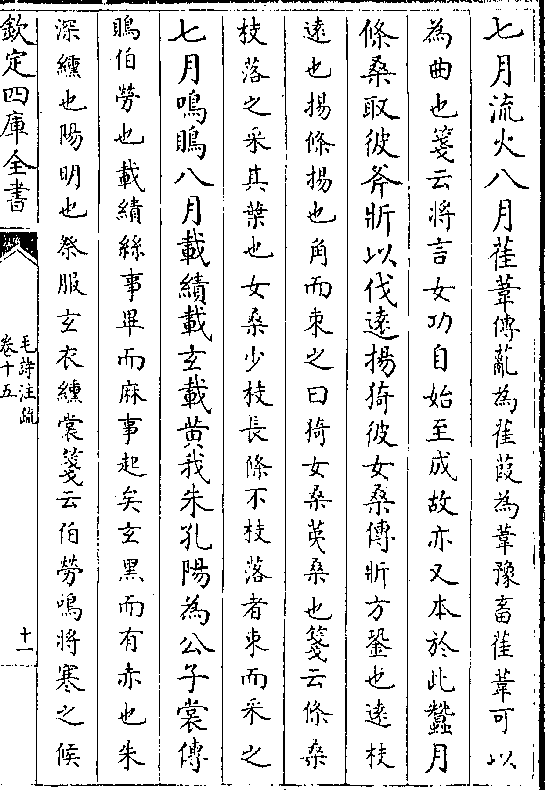 七月流火八月萑葦傳薍為萑葭為葦豫畜萑葦可以
為曲也箋云將言女功自始至成故亦又本於此蠶月
條桑取彼斧斨以伐逺揚猗彼女桑傳斨方銎也逺枝
逺也揚條揚也角而束之曰猗女桑荑桑也箋云條桑
枝落之采其葉也女桑少枝長條不枝落者束而采之
七月鳴鵙八月載績載玄載黄我朱孔陽為公子裳傳
鵙伯勞也載績絲事畢而麻事起矣玄黑而有赤也朱
深纁也陽明也祭服玄衣纁裳箋云伯勞鳴將寒之候
欽定四庫全書
毛詩注疏
卷十五
十一